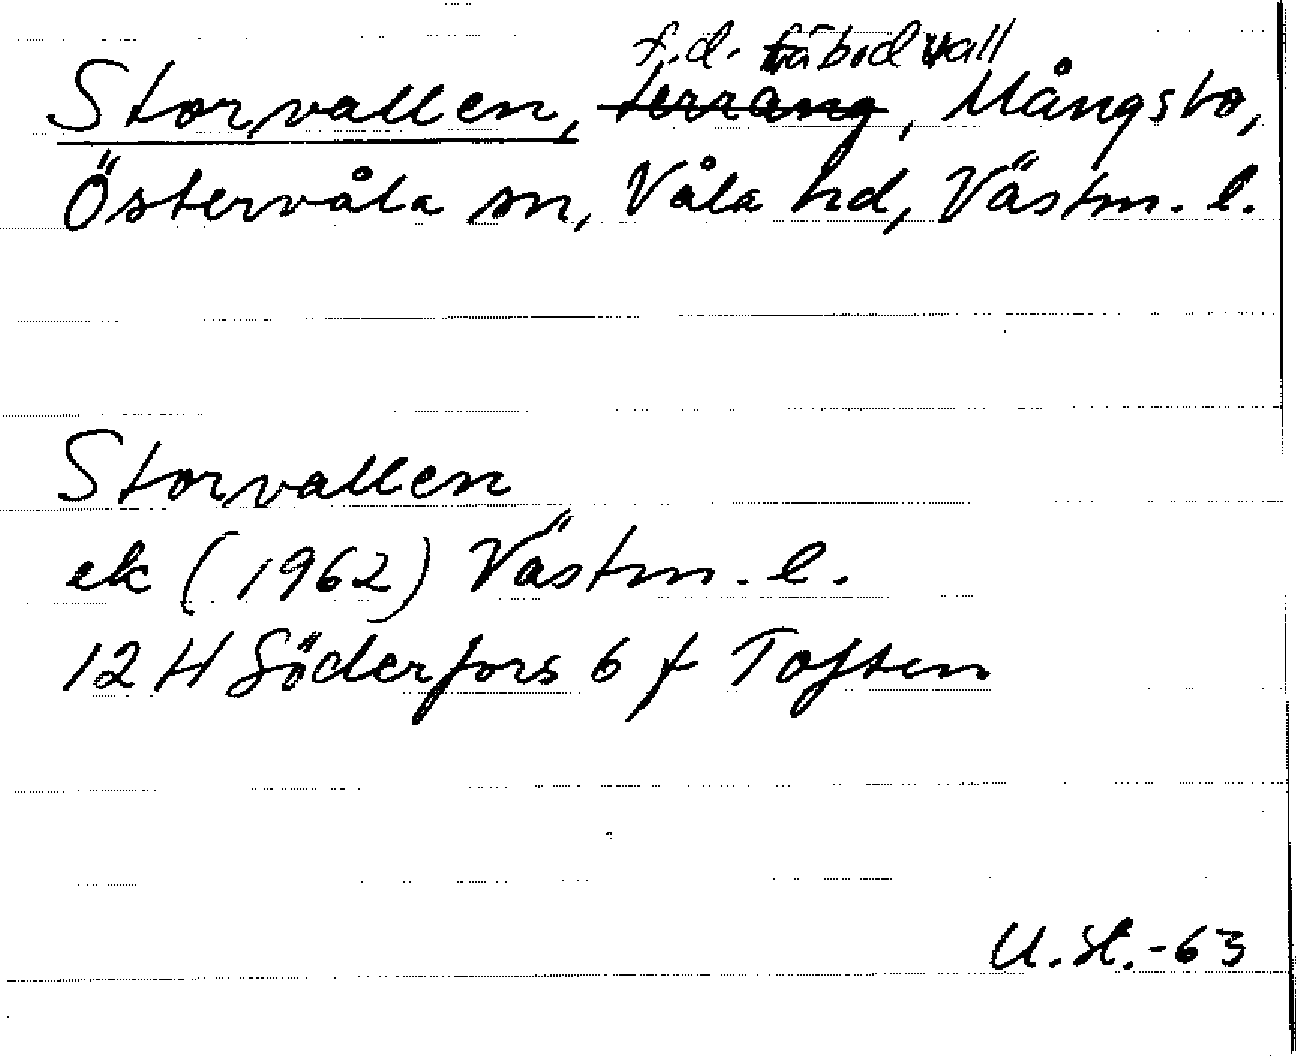 f.d. fäbodvall
Storvallen, terräng, Mångsbo,
Östervåla sn, Våla hd, Västm. l.
Storvallen
ek (1962) Västm. l.
12 H Söderfors 6 f Toften
U. St. -63